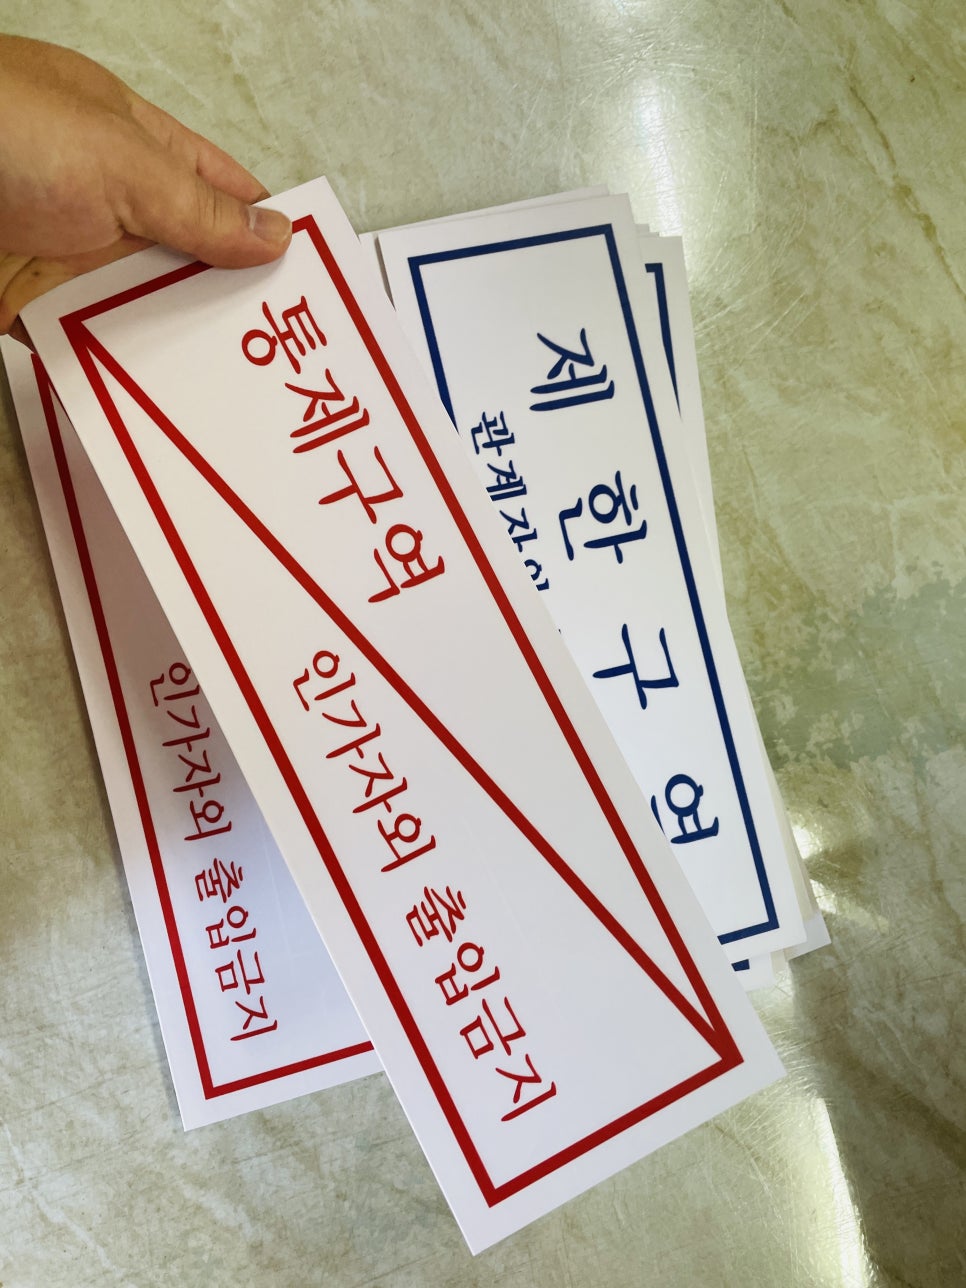 통제구역
인가자외 출입금지
제한구역
관계자외
인가자외 출입금지